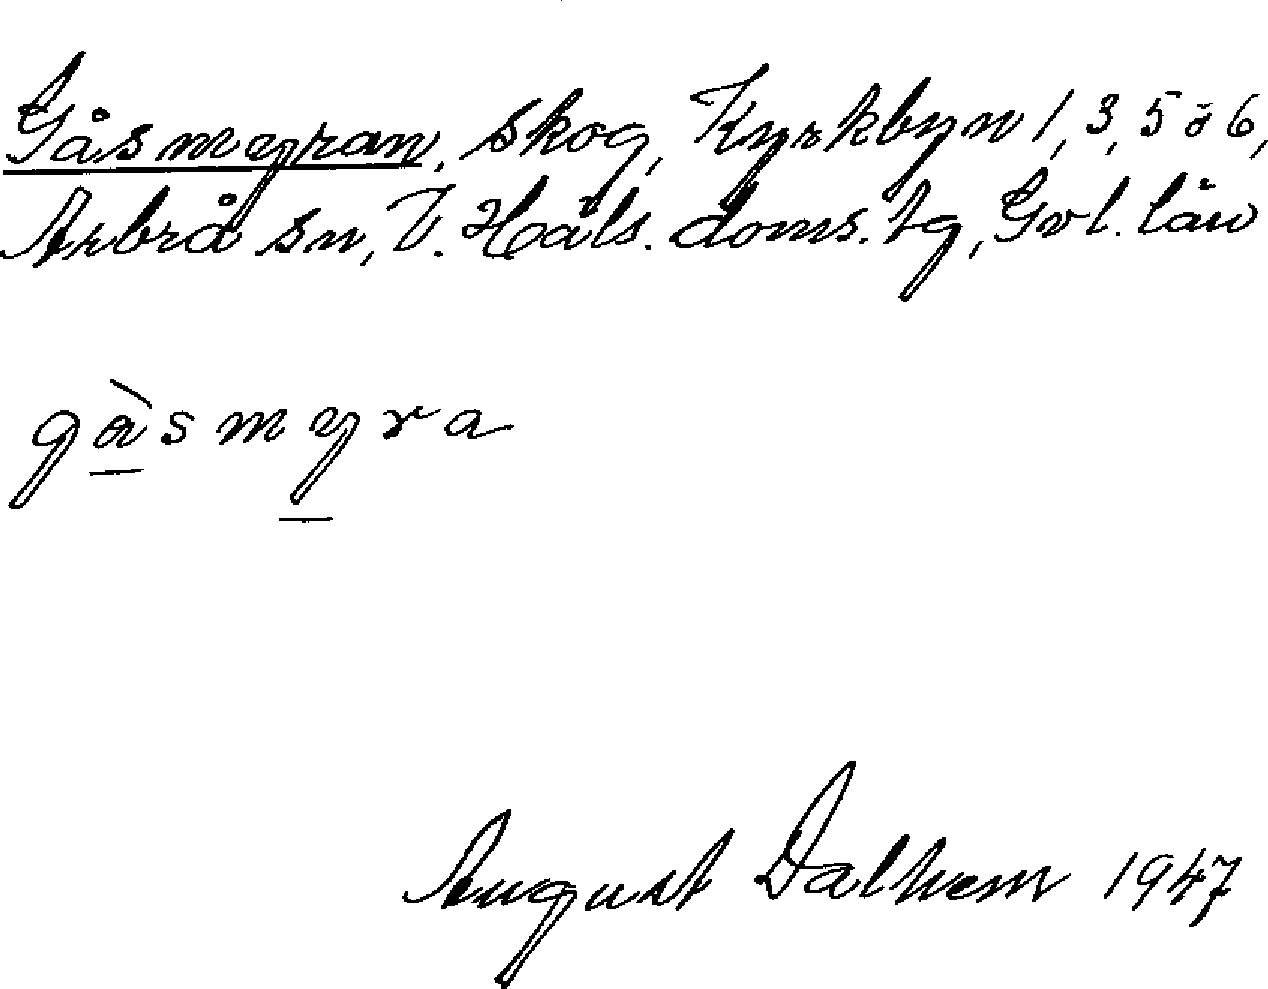 Gåsmyran, skog, Kyrkbyn 1, 3, 5 o 6,
Arbrå sn, V. Häls. doms. tg, Gvl. län
gåsmyra
August Dalhem 1947